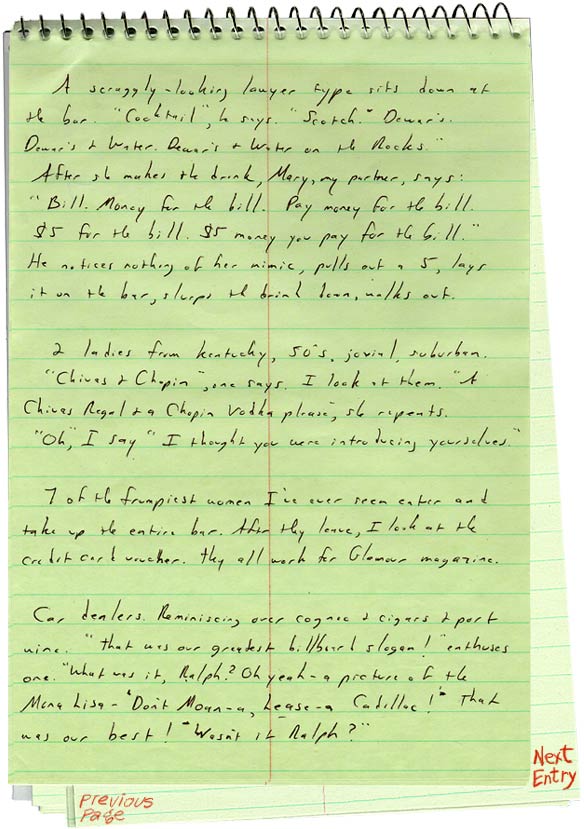 A scraggly-looking lawyer type sits down at
the bar. "Cocktail", he says. "Scotch." Dewar's.
Dewar's & Water. Dewar's & Water on the Rocks."
After she makes the drink, Mary, my partner, says:
"Bill. Money for the bill. Pay money for the bill.
$5 for the bill. $5 money you pay for the bill."
He notices nothing of her mimic, pulls out a 5, lays
it on the bar, slurps the drink down, walks out.
2 ladies from Kentucky, 50's, jovial, suburban.
"Chivas & Chopin", one says. I look at them. "A
Chivas Regal & a Chopin Vodka please", she repents.
"Oh", I say "I thought you were introducing yourselves."
7 of the frumpiest women I've ever seen enter and
take up the entire bar. After they leave, I look at the
credit card voucher. They all work for Glamour magazine.
Car dealers. Reminiscing over cognac & cigars & port
wine. "That was our greatest billboard slogan!" enthuses
one. "What was it, Ralph? Oh yeah - a picture of the
Mona Lisa - 'Don't Moan-a, Lease-a Cadillac!' That
was our best! Wasn't it Ralph?"
Next
Entry
Previous
Page